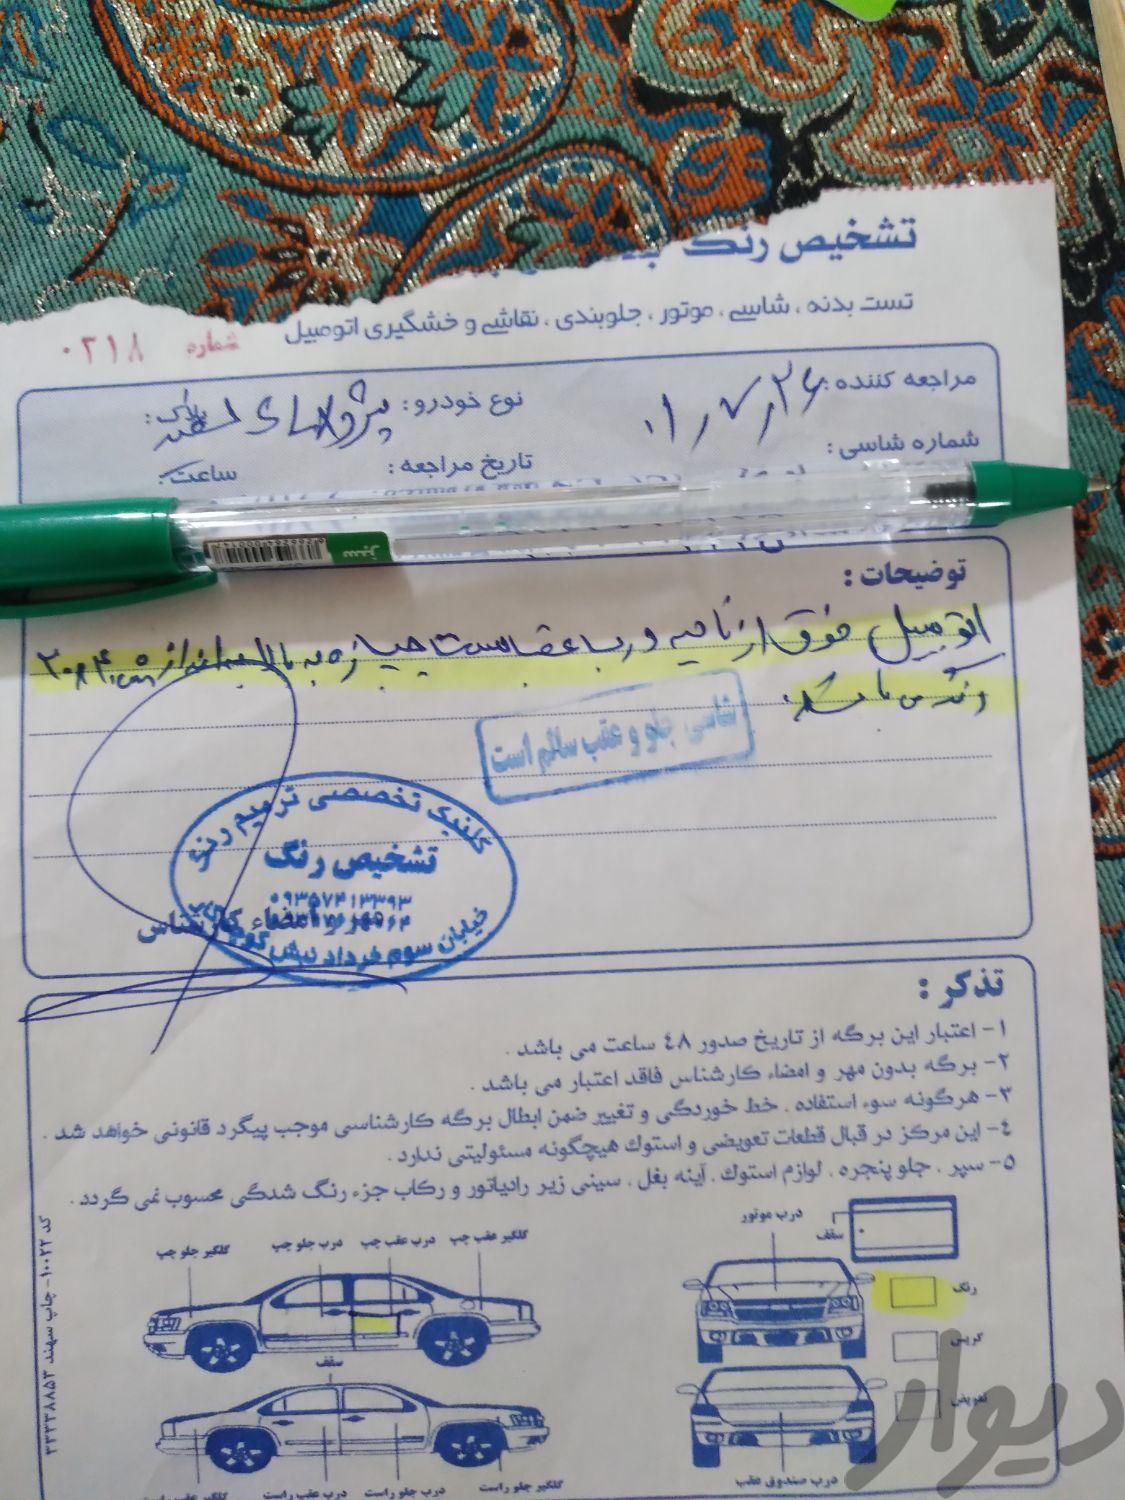 تشخیص رنگ
تست بدنه ، شاسی ، موتور ، جلوبندی ، نقاشی و خشگیری اتومبیل
شماره ۰۲۱۸
مراجعه کننده : ۰۱/۷/۲۶
نوع خودرو : پژو پارس سفید
پلاک :
شماره شاسی :
تاریخ مراجعه :
ساعت :
سبز
توضیحات :
اتومبیل فوق از ناحیه درب عقب سمت چپ از زه به بالا به اندازه
رنگ می باشد
شاسی جلو و عقب سالم است
کلینیک تخصصی ترمیم رنگ
تشخیص رنگ
۰۹۳۵۷۴۱۳۳۹۳
مهر و امضاء کارشناس
خیابان سوم خرداد نبش
تذکر :
۱- اعتبار این برگه از تاریخ صدور ٤٨ ساعت می باشد .
۲- برگه بدون مهر و امضاء کارشناس فاقد اعتبار می باشد .
۳- هرگونه سوء استفاده ، خط خوردگی و تغییر ضمن ابطال برگه کارشناسی موجب پیگرد قانونی خواهد شد .
٤- این مرکز در قبال قطعات تعویضی و استوک هیچگونه مسئولیتی ندارد .
۵- سپر ، جلو پنجره ، لوازم استوک ، آینه بغل ، سینی زیر رادیاتور و رکاب جزء رنگ شدگی محسوب نمی گردد .
درب موتور
سقف
گلگیر عقب چپ
درب عقب چپ
درب جلو چپ
گلگیر جلو چپ
رنگ
سقف
تعویض
گلگیر جلو راست
درب جلو راست
درب عقب راست
گلگیر عقب راست
درب صندوق عقب
کد ۱۰۰۲۲ - چاپ سهند ۳۳۳۳۸۸۵۳
دیوار